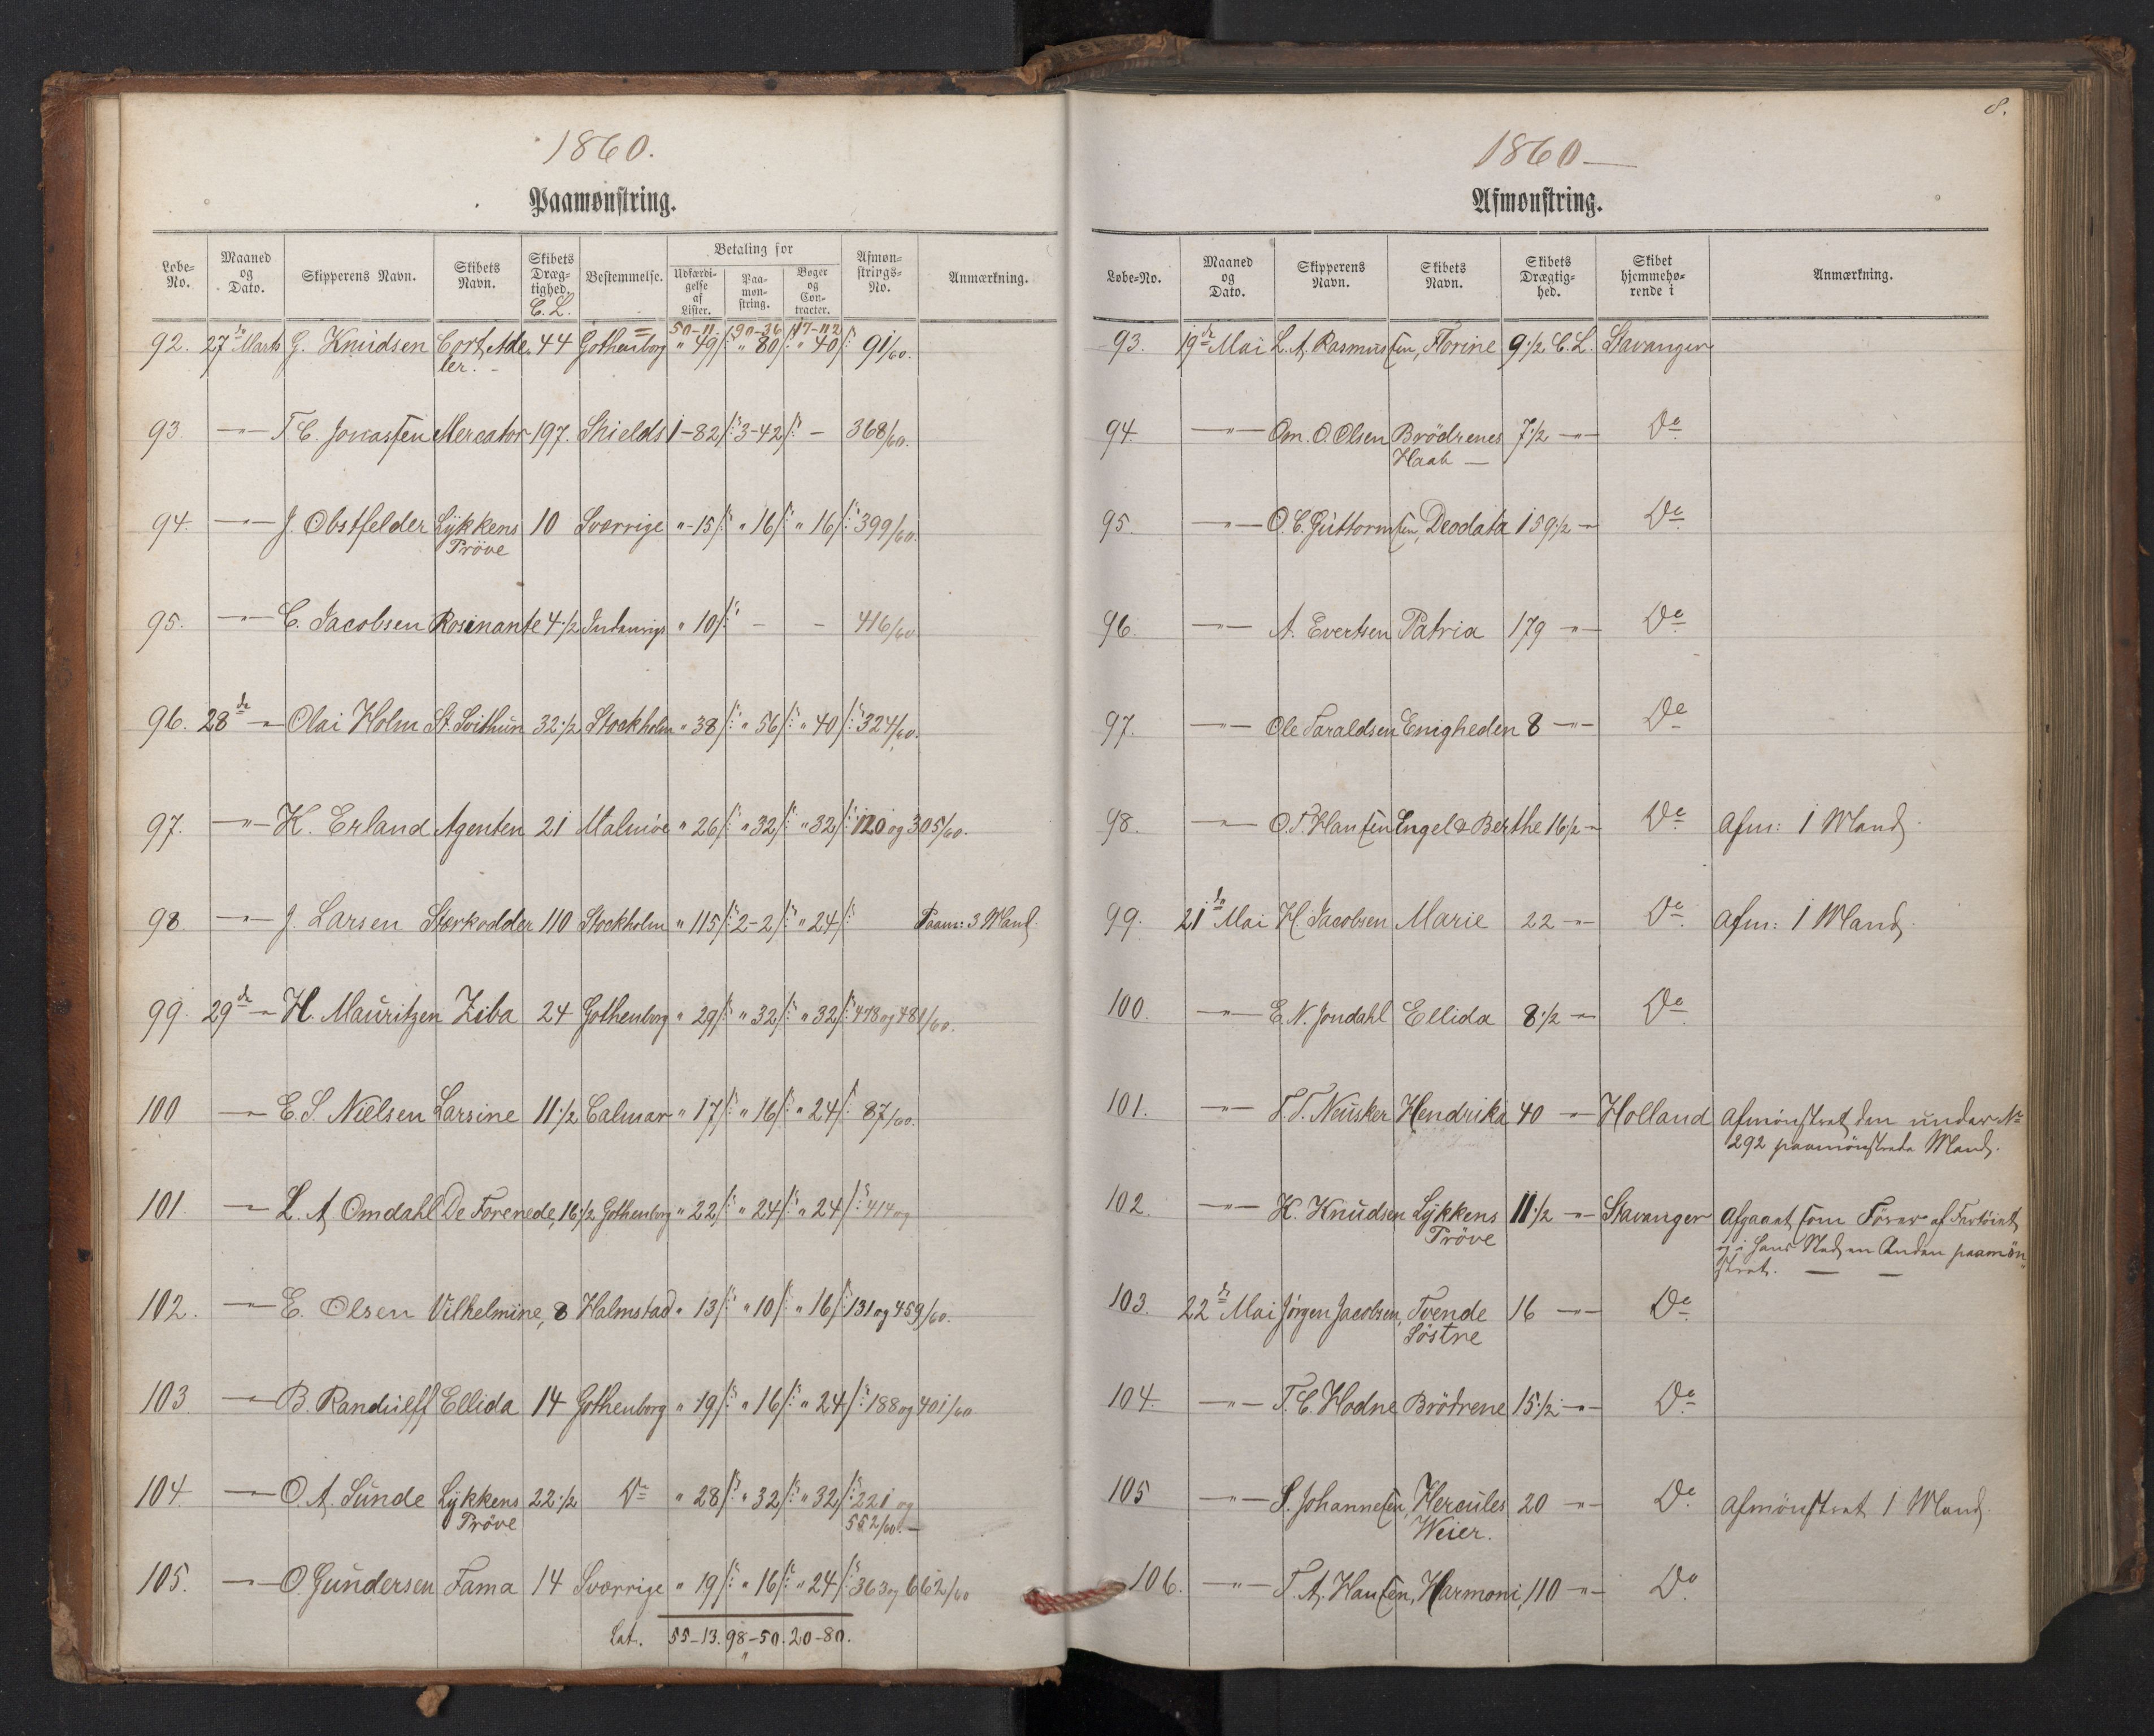 1860.
Paamønstring.
Løbe-No. Maaned og Dato. Skipperens Navn. Skibets Navn. Skibets Dræg-tighed. C. L. Bestemmelse. Betaling for Udfærdi-gelse af Lister. Paa-møn-string. Bøger og Con-tracter. Afmøn-strings-No. Anmærkning.
50-11. 90-36 17-112
92. 27de Marts G. Knudsen Cort Ade- 44 Gothenborg " 49/: " 80/: " 40/: 91/60.
ler. -
93. -"- T C. Jonassen Mercator 197. Shields 1-82/: 3-42/: - 368/60.
94. -"- J. Obstfelder Lykkens 10 Sverrige "-15/: " 16/: " 16/: 399/60.
Pröve
95. -"- C. Jacobsen Rosinante 4 1/2 Indenrigs " 10/: - - 416/60
96. 28de -"- Olai Holm St. Svithun 32 1/2 Stockholm " 38/: " 56/: " 40/: 324/60.
97. -"- K. Erland Agenten 21 Malmöe " 26/: " 32/: " 32/: 120 og 305/60.
98. -"- J. Larsen Stærkodder 110 Stockholm " 115/: 2-2/: " 24/: Paam: 3 Mand.
99. 29de -"- H. Mauritzen Ziba 24 Gothenborg " 29/: " 32/: " 32/: 418 og 481/60.
100 -"- E. S. Nielsen Larsine 11 1/2 Calmar " 17/: " 16/: " 24/: 87/60.
101. -"- L. A. Omdahl De Forenede, 16 1/2 Gothenborg " 22/: " 24/: " 24/: 414 og
102. -"- E. Olsen Vilhelmine, 8 Halmstad " 13/: " 10/: " 16/: 131 og 459/60.
103 -"- B. Randulff Ellida 14 Gothenborg " 19/: " 16/: " 24/: 188 og 401/60
104. -"- O. A. Sunde Lykkens 22 1/2 Do " 28/: " 32/: " 32/: 221 og
Pröve 552/60. -
105. -"- O. Gundersen Fama 14 Sverrige " 19/: " 16/: " 24/: 363 og 662/60
Lat. 55-13. 98-50. 20-80.
8.
1860 -
Afmønstring.
Løbe-No. Maaned og Dato. Skipperens Navn. Skibets Navn. Skibets Drægtig-hed. Skibet hjemmehø-rende i Anmærkning.
93. 19de Mai L. A. Rasmussen, Florine 9 1/2 C. L. Stavanger
94. -"- Om. O. Olsen Brödrenes 7 1/2 -"- Do
Haab -
95. -"- O. C. Guttormsen, Deodata 159 1/2 -"- Do
96. -"- A. Evertsen Patria 179 -"- Do
97. -"- Ole Taraldsen Enigheden 8 -"- Do
98. -"- O. T. Hansen Engel & Berthe 16 1/2 -"- Do Afm: 1 Mand.
99. 21de Mai H. Jacobsen Marie 22 -"- Do Afm: 1 Mand.
100. -"- E. N. Jondahl Ellida 8 1/2 -"- Do
101. -"- Neusker Hendrika 40 -"- Holland Afmönstret den under No
292 paamönstrede Mand.
102. -"- K. Knudsen Lykkens 11 1/2 -"- Stavanger Afgaaet som Förer af Fartöiet
Pröve og i hans Sted en Anden paamön
stret. - -
103. 22de Mai Jörgen Jacobsen, Tvende 16 -"- Do
Söstre
104. -"- T. C. Hodne Brödrene 15 1/2 -"- Do
105 -"- S. Johannesen, Hercules 20 -"- Do Afmönstret 1 Mand.
Weier.
106. -"- T. A. Hansen, Harmoni, 110 -"- Do